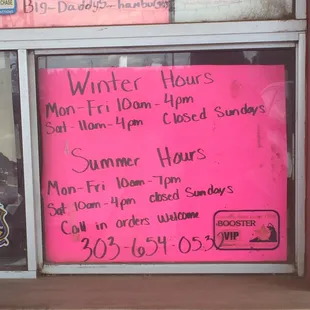 Big-Daddys-hamburg
Winter Hours
Mon-Fri 10am-4pm
Sat-11am-4pm Closed Sundays
Summer Hours
Mon-Fri 10am-7pm
Sat 10am-4pm closed Sundays
Call in orders welcome
303-654-053
BOOSTER
VIP